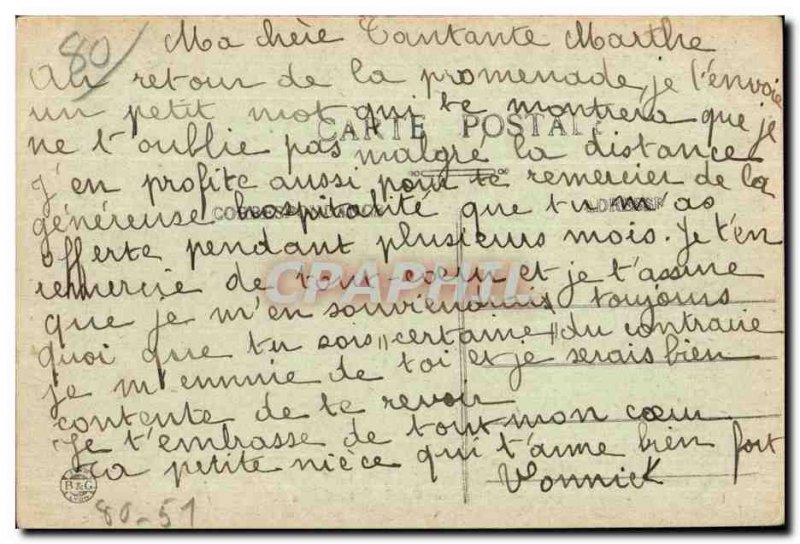 80
Ma chère Tantante Marthe
Au retour de la promenade, je t'envoie
un petit mot qui te montrera que je
CARTE POSTALE
ne t'oublie pas malgré la distance
J'en profite aussi pour te remercier de la
généreuse hospitalité que tu m'as
CORRESPONDANCE ADRESSE
offerte pendant plusieurs mois. Je t'en
remercie de tout cœur et je t'assure
CPAPHIL
que je m'en souviendrais toujours
quoi que tu sois "certaine" du contraire
je m'ennuie de toi et je serais bien
contente de te revoir
Je t'embrasse de tout mon cœur
Ta petite nièce qui t'aime bien fort
Vonnick
B&G
80-51